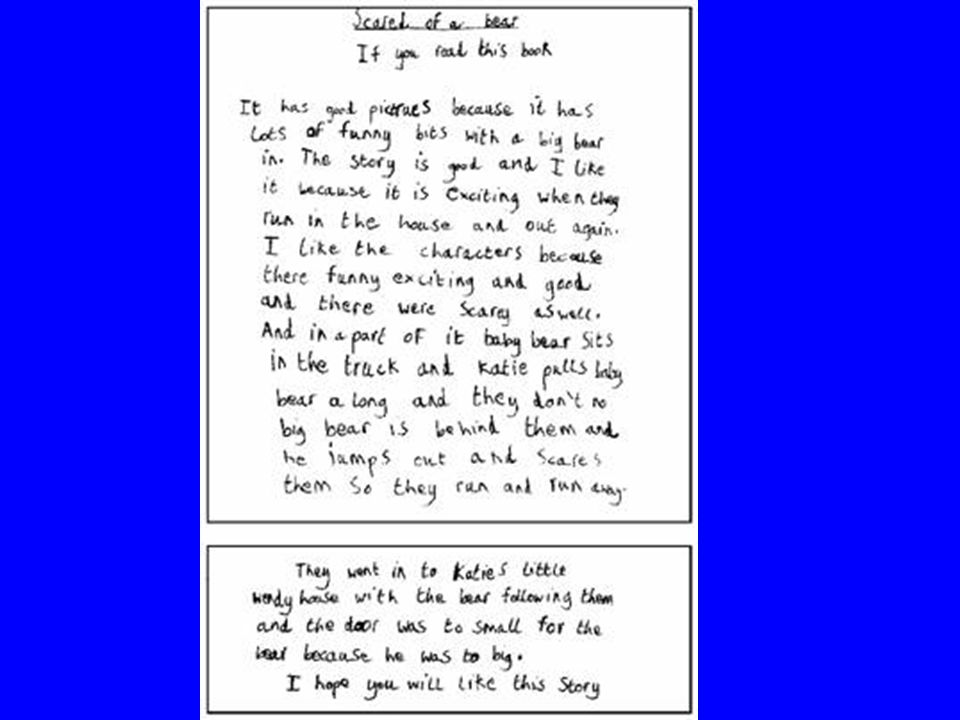 Scared of a bear
If you read this book
It has good pictrues because it has
Lots of funny bits with a big bear
in. The story is good and I like
it because it is exciting when they
run in the house and out again.
I like the characters because
there funny exciting and good
and there were scarey aswell.
And in a part of it baby bear sits
in the truck and Katie pulls baby
bear a long and they don't no
big bear is behind them and
he jamps out and scares
them so they run and run away.
They went in to Katies little
wendy house with the bear following them
and the door was to small for the
bear because he was to big.
I hope you will like this story